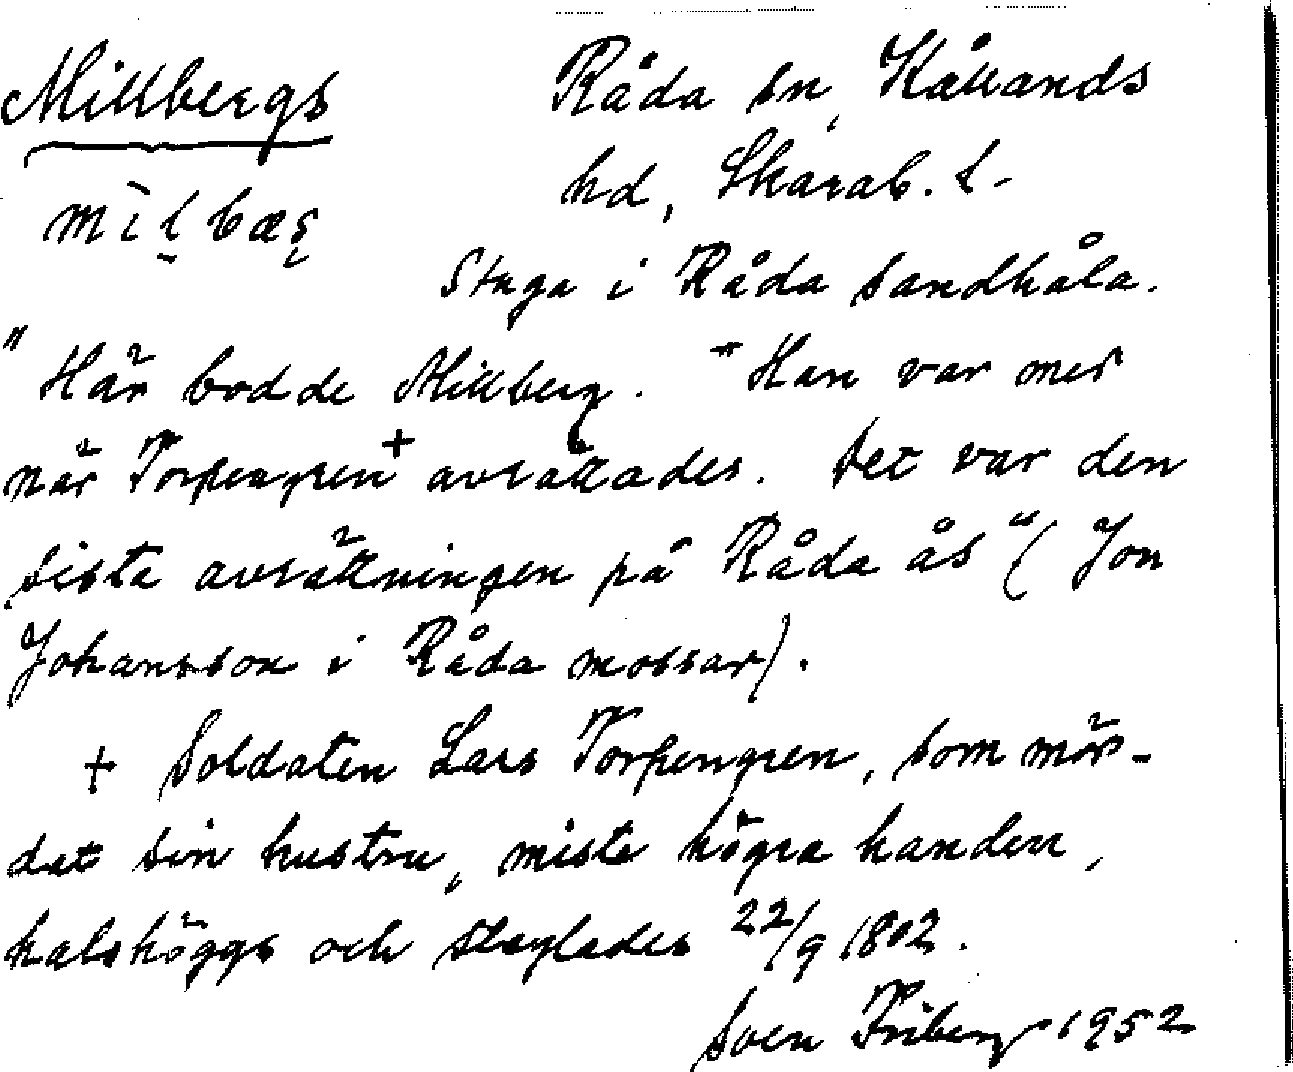 Millbergs
Råda sn, Kållands
hd, Skarab. l-
mìlbæȩ
Stuga i Råda sandhåla.
"Här bodde Millberg. - Han var mer
när Torpengren + avrättades. Det var den
sista avrättningen på Råda ås" (Jon
Johansson i Råda mossar).
+ Soldaten Lars Torpengren, som mör-
dat sin hustru, miste högra handen,
halshöggs och steglades 22/9 1802.
Sven Friberg 1952